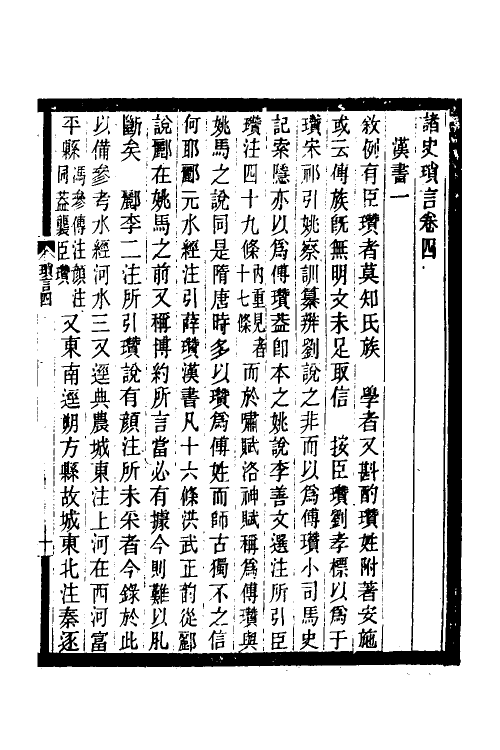 諸史瑣言卷四
漢書一
敘例有臣瓚者莫知氏族　學者又斟酌瓚姓附著安施
或云傅族旣無明文未足取信　按臣瓚劉孝標以爲于
瓚宋祁引姚察訓纂辨劉說之非而以爲傅瓚小司馬史
記索隱亦以爲傅瓚葢卽本之姚說李善文選注所引臣
瓚注四十九條內重見者十七條　而於嘯賦洛神賦稱爲傅瓚與
姚馬之說同是隋唐時多以瓚爲傅姓而師古獨不之信
何耶酈元水經注引薛瓚漢書凡十六條洪武正韵從酈
說酈在姚馬之前又稱博約所言當必有據今則難以肊
斷矣　酈李二注所引瓚說有顏注所未采者今錄於此
以備參考水經河水三又逕典農城東注上河在西河富
平縣馮參傳注顏注同葢襲臣瓚　又東南逕朔方縣故城東北注秦逐
瑣言四
十